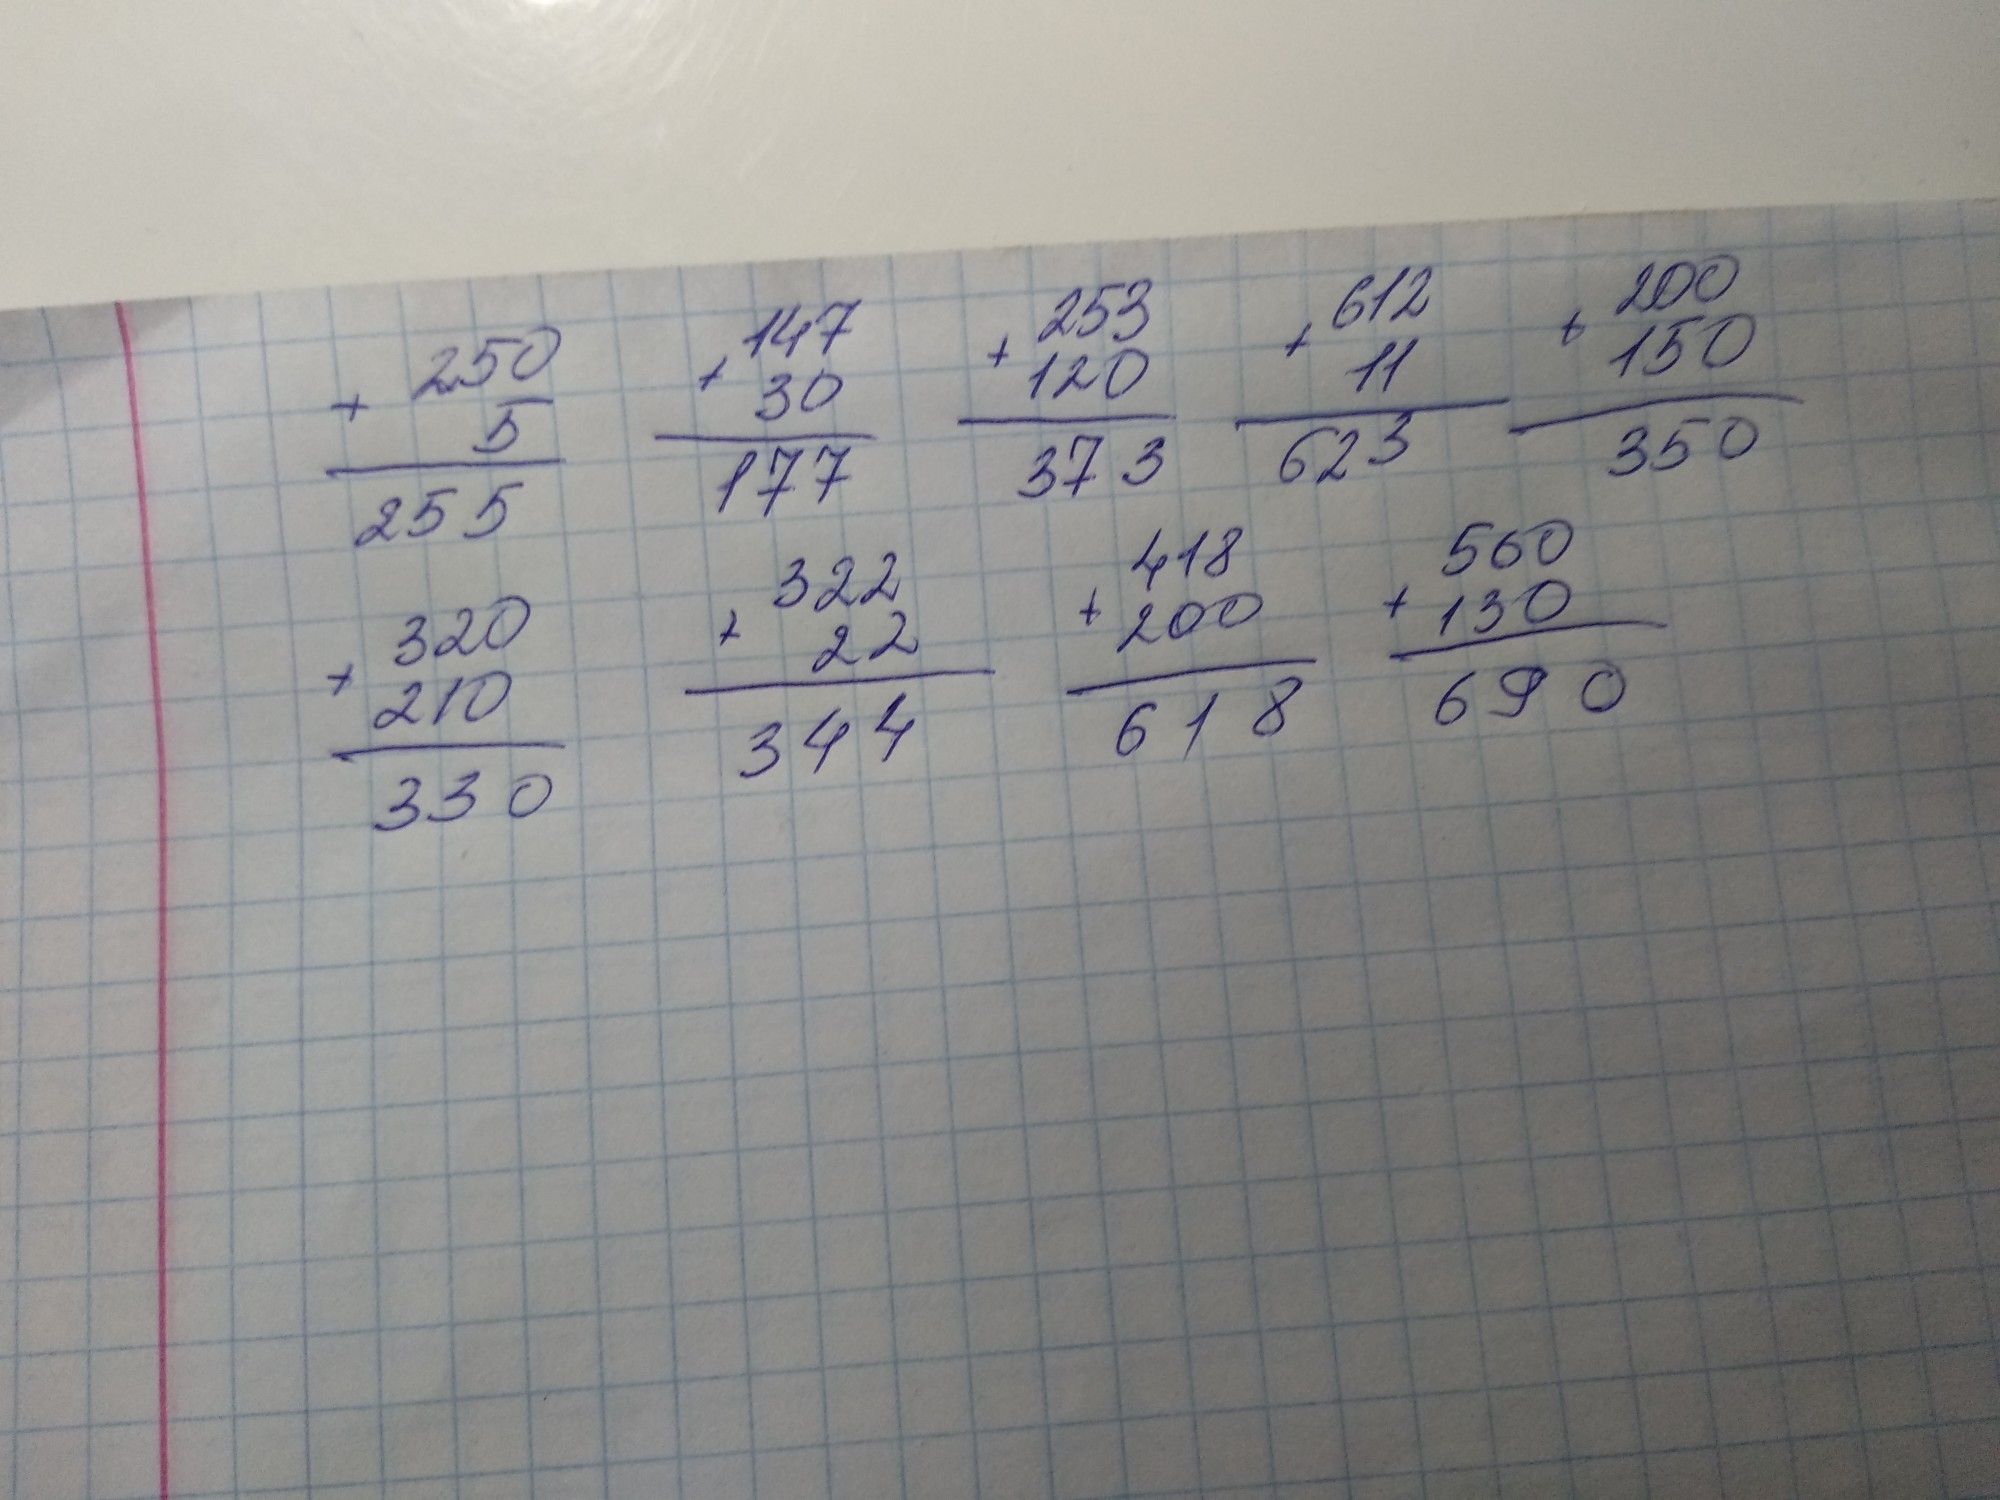 250 147 253 612 200
+ 5 + 30 + 120 + 11 + 150
255 177 373 623 350
320 322 418 560
+ 210 + 22 + 200 + 130
330 344 618 690